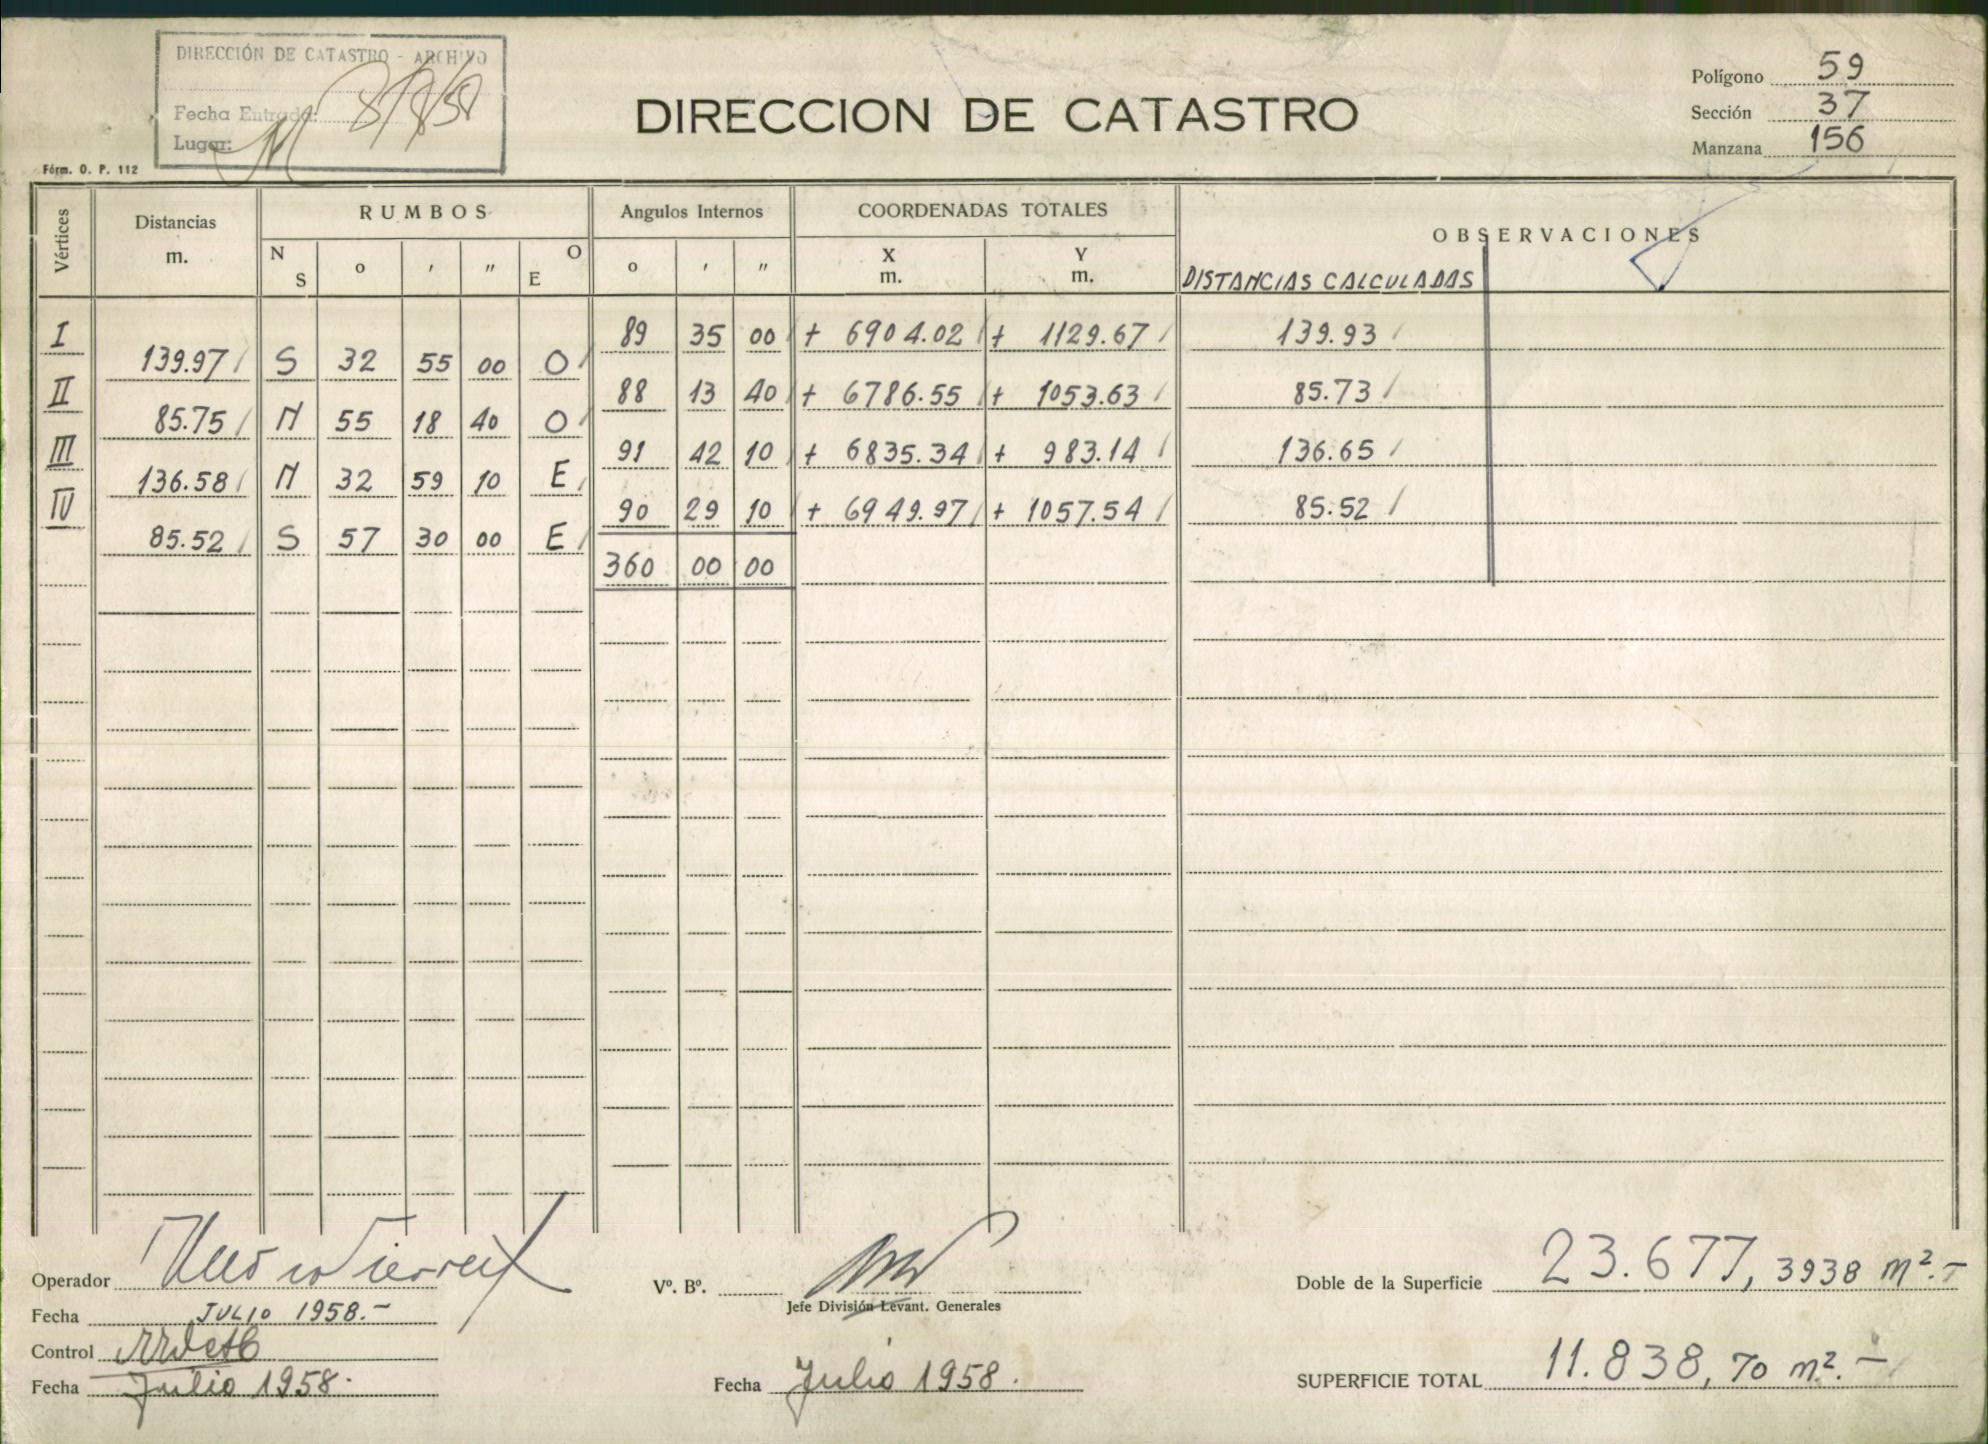 DIRECCIÓN DE CATASTRO - ARCHIVO
Fecha Entrada: 8/8/58
Lugar:
Fórm. O. P. 112
DIRECCION DE CATASTRO
Polígono 59
Sección 37
Manzana 156
Vértices Distancias m. RUMBOS Angulos Internos COORDENADAS TOTALES OBSERVACIONES
N S o ' " O E o ' " X m. Y m. DISTANCIAS CALCULADAS
I 89 35 00 + 6904.02 + 1129.67 139.93
139.97 S 32 55 00 O
II 88 13 40 + 6786.55 + 1053.63 85.73
85.75 N 55 18 40 O
III 91 42 10 + 6835.34 + 983.14 136.65
136.58 N 32 59 10 E
IV 90 29 10 + 6949.97 + 1057.54 85.52
85.52 S 57 30 00 E
360 00 00
Operador
Fecha JULIO 1958.-
Control
Fecha Julio 1958.
Vº. Bº.
Jefe División Levant. Generales
Fecha Julio 1958.
Doble de la Superficie 23.677,3938 m².-
SUPERFICIE TOTAL 11.838,70 m².-